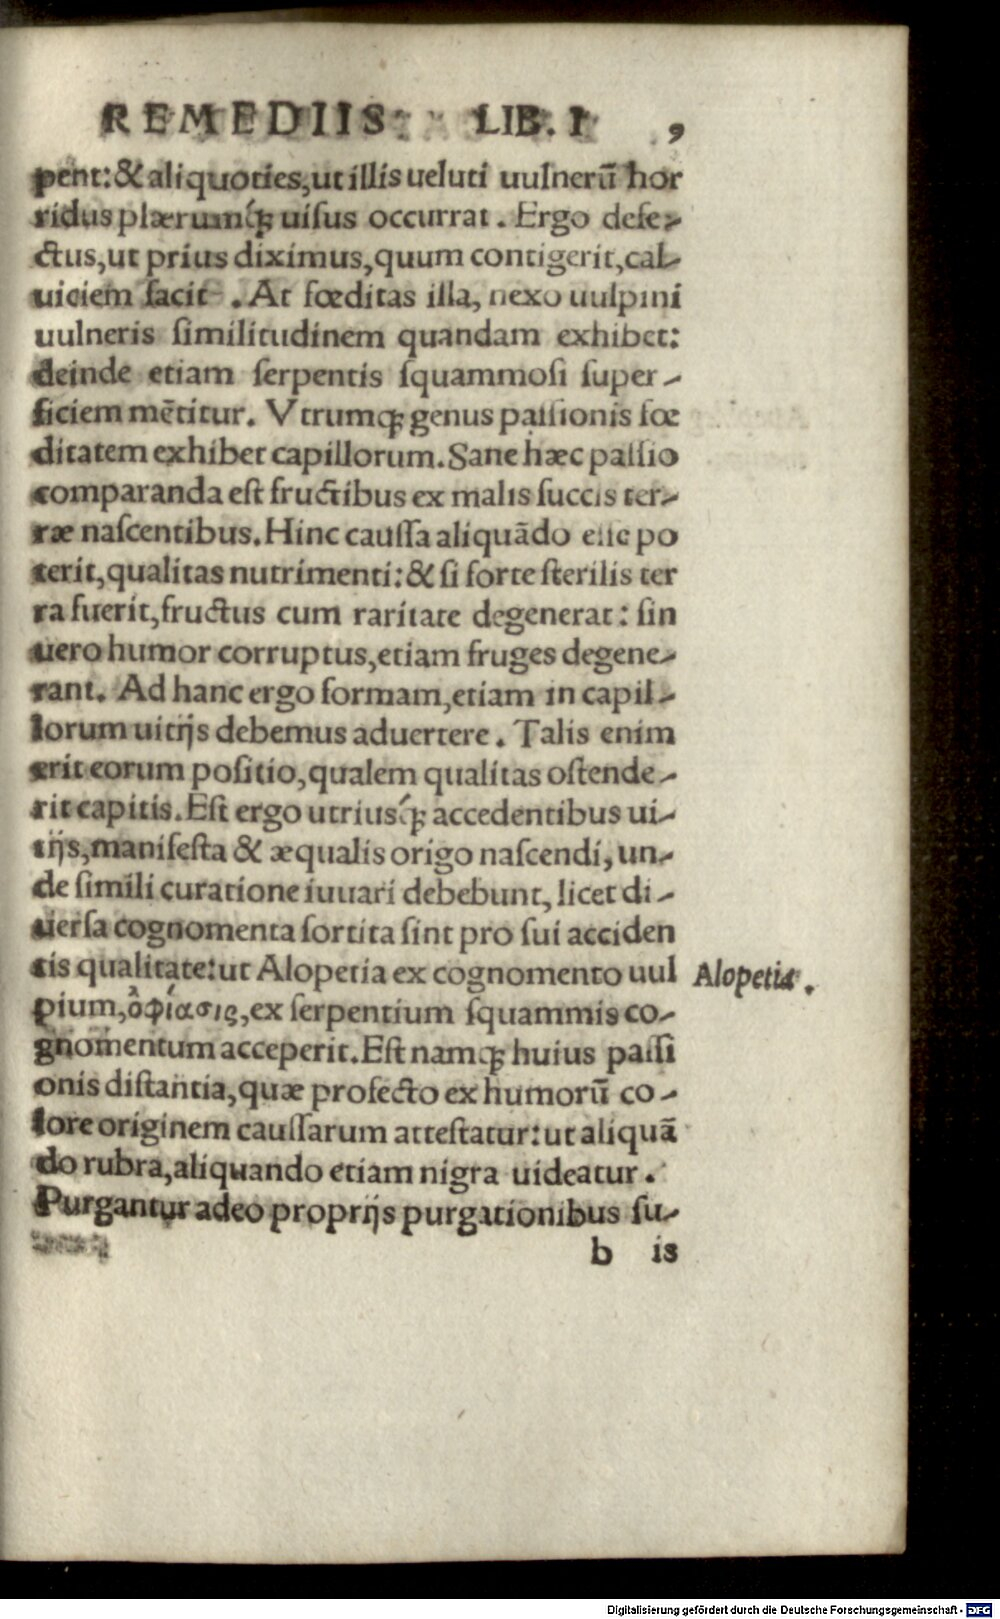 REMEDIIS LIB. I 9
pent: & aliquoties, ut illis ueluti uulnerū hor
ridus plærumq́ꝫ uiſus occurrat. Ergo defe-
ctus, ut prius diximus, quum contigerit, cal-
uiciem facit. At fœditas illa, nexo uulpini
uulneris ſimilitudinem quandam exhibet:
deinde etiam ſerpentis ſquammoſi ſuper-
ficiem mētitur. Vtrumqꝫ genus paſſionis fœ
ditatem exhibet capillorum. Sane hæc paſſio
comparanda eſt fructibus ex malis ſuccis ter-
ræ naſcentibus. Hinc cauſſa aliquādo eſſe po
terit, qualitas nutrimenti: & ſi forte ſterilis ter
ra fuerit, fructus cum raritate degenerat: ſin
uero humor corruptus, etiam fruges degene-
rant. Ad hanc ergo formam, etiam in capil-
lorum uitijs debemus aduertere. Talis enim
erit eorum poſitio, qualem qualitas oſtende-
rit capitis. Eſt ergo utriusq́ꝫ accedentibus ui-
tijs, manifeſta & æqualis origo naſcendi, un-
de ſimili curatione iuuari debebunt, licet di-
uerſa cognomenta ſortita ſint pro ſui acciden
tis qualitate: ut Alopetia ex cognomento uul
Alopetia.
pium, ὀφίασις, ex ſerpentium ſquammis co-
gnomentum acceperit. Eſt namqꝫ huius paſſi
onis diſtantia, quæ profecto ex humorū co-
lore originem cauſſarum atteſtatur: ut aliquā
do rubra, aliquando etiam nigra uideatur.
Purgantur adeo proprijs purgationibus ſu-
b is
Digitalisierung gefördert durch die Deutsche Forschungsgemeinschaft - DFG